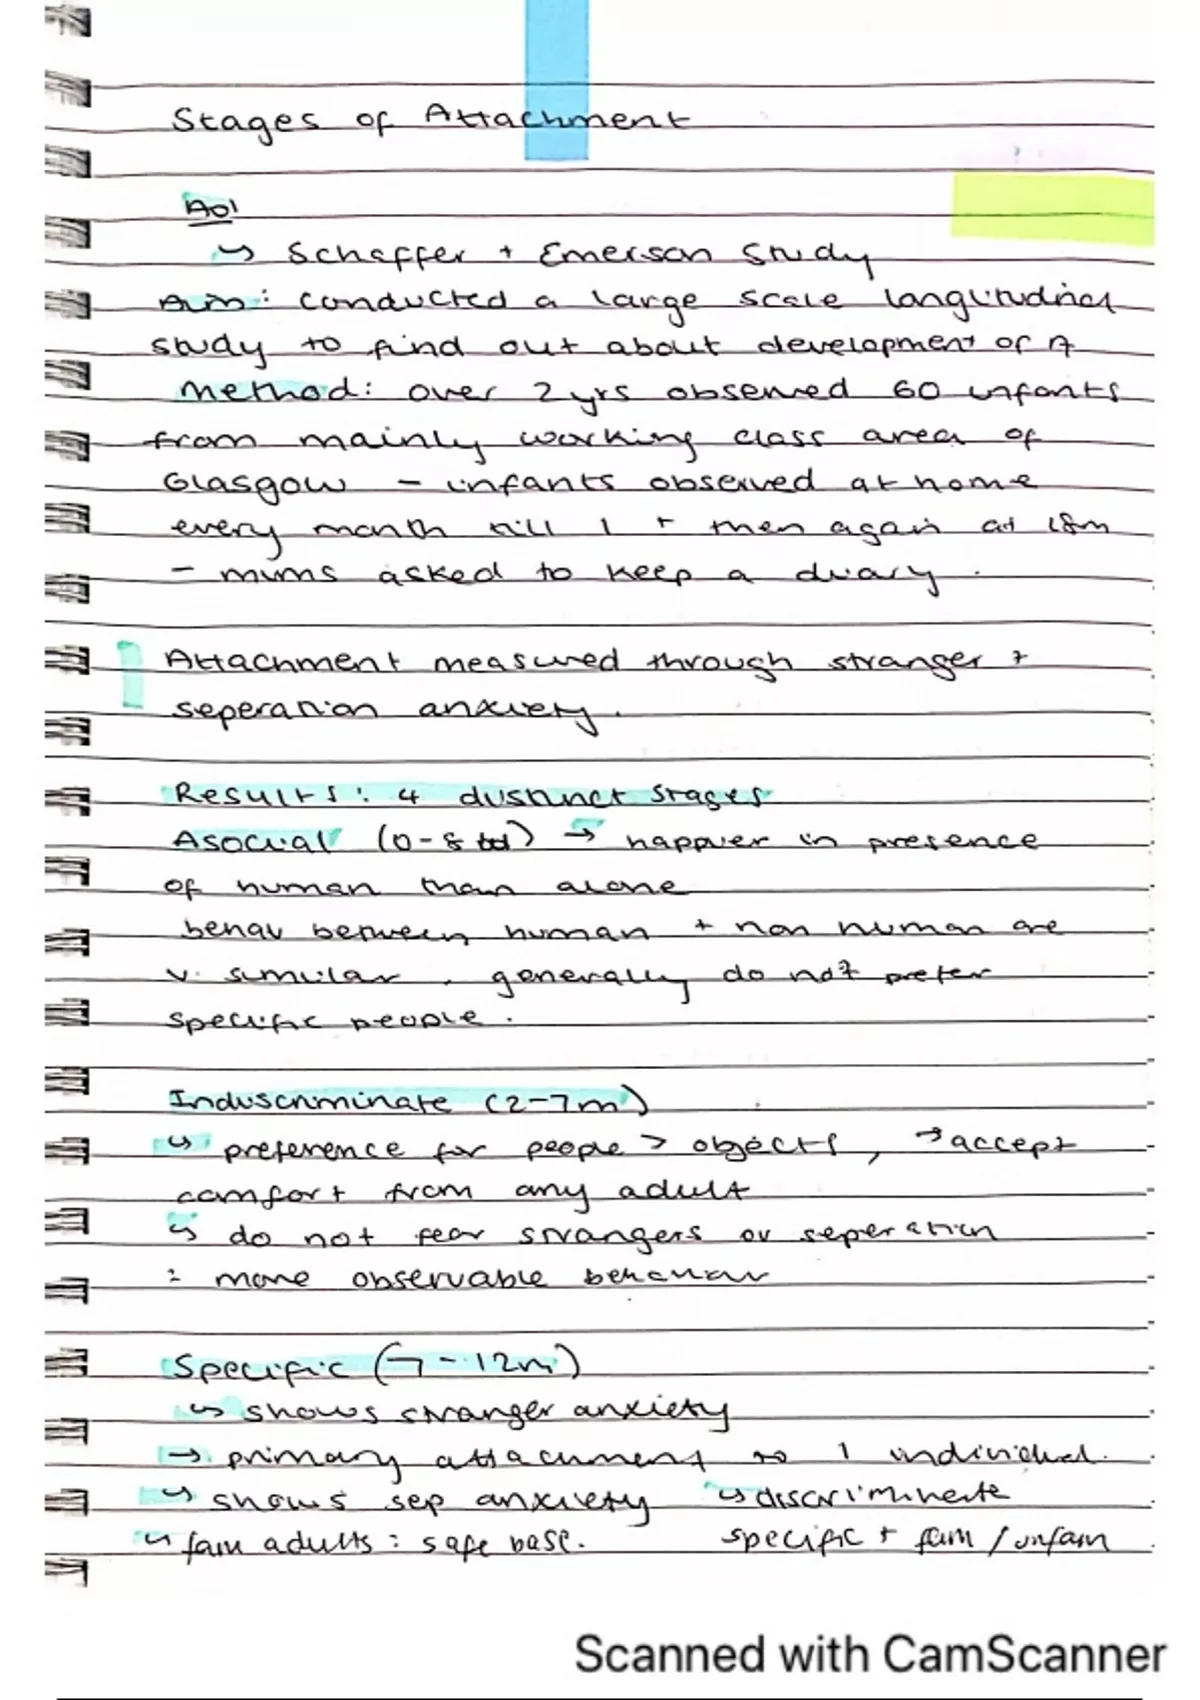 Stages of Attachment
AO1
↳ Schaffer + Emerson Study
Aim: conducted a large scale longlitudinal
study to find out about development of A
Method: over 2yrs observed 60 infants
from mainly working class area of
Glasgow – infants observed at home
every month till 1 + then again at 18m
– mums asked to keep a diary.
Attachment measured through stranger +
seperation anxiety.
Results: 4 distinct stages
Asocial (0-8) → happier in presence
of human than alone
behav between human + non human are
v. similar, generally do not prefer
specific people.
Indiscriminate (2-7m)
↳ preference for people > objects, → accept
comfort from any adult
↳ do not fear strangers or seperation
: more observable behaviour
Specific (7-12m)
↳ shows stranger anxiety
→ primary attachment to 1 individual.
↳ shows sep anxiety ↳ discriminate
↳ fam adults : safe base. specific + fam / unfam
Scanned with CamScanner